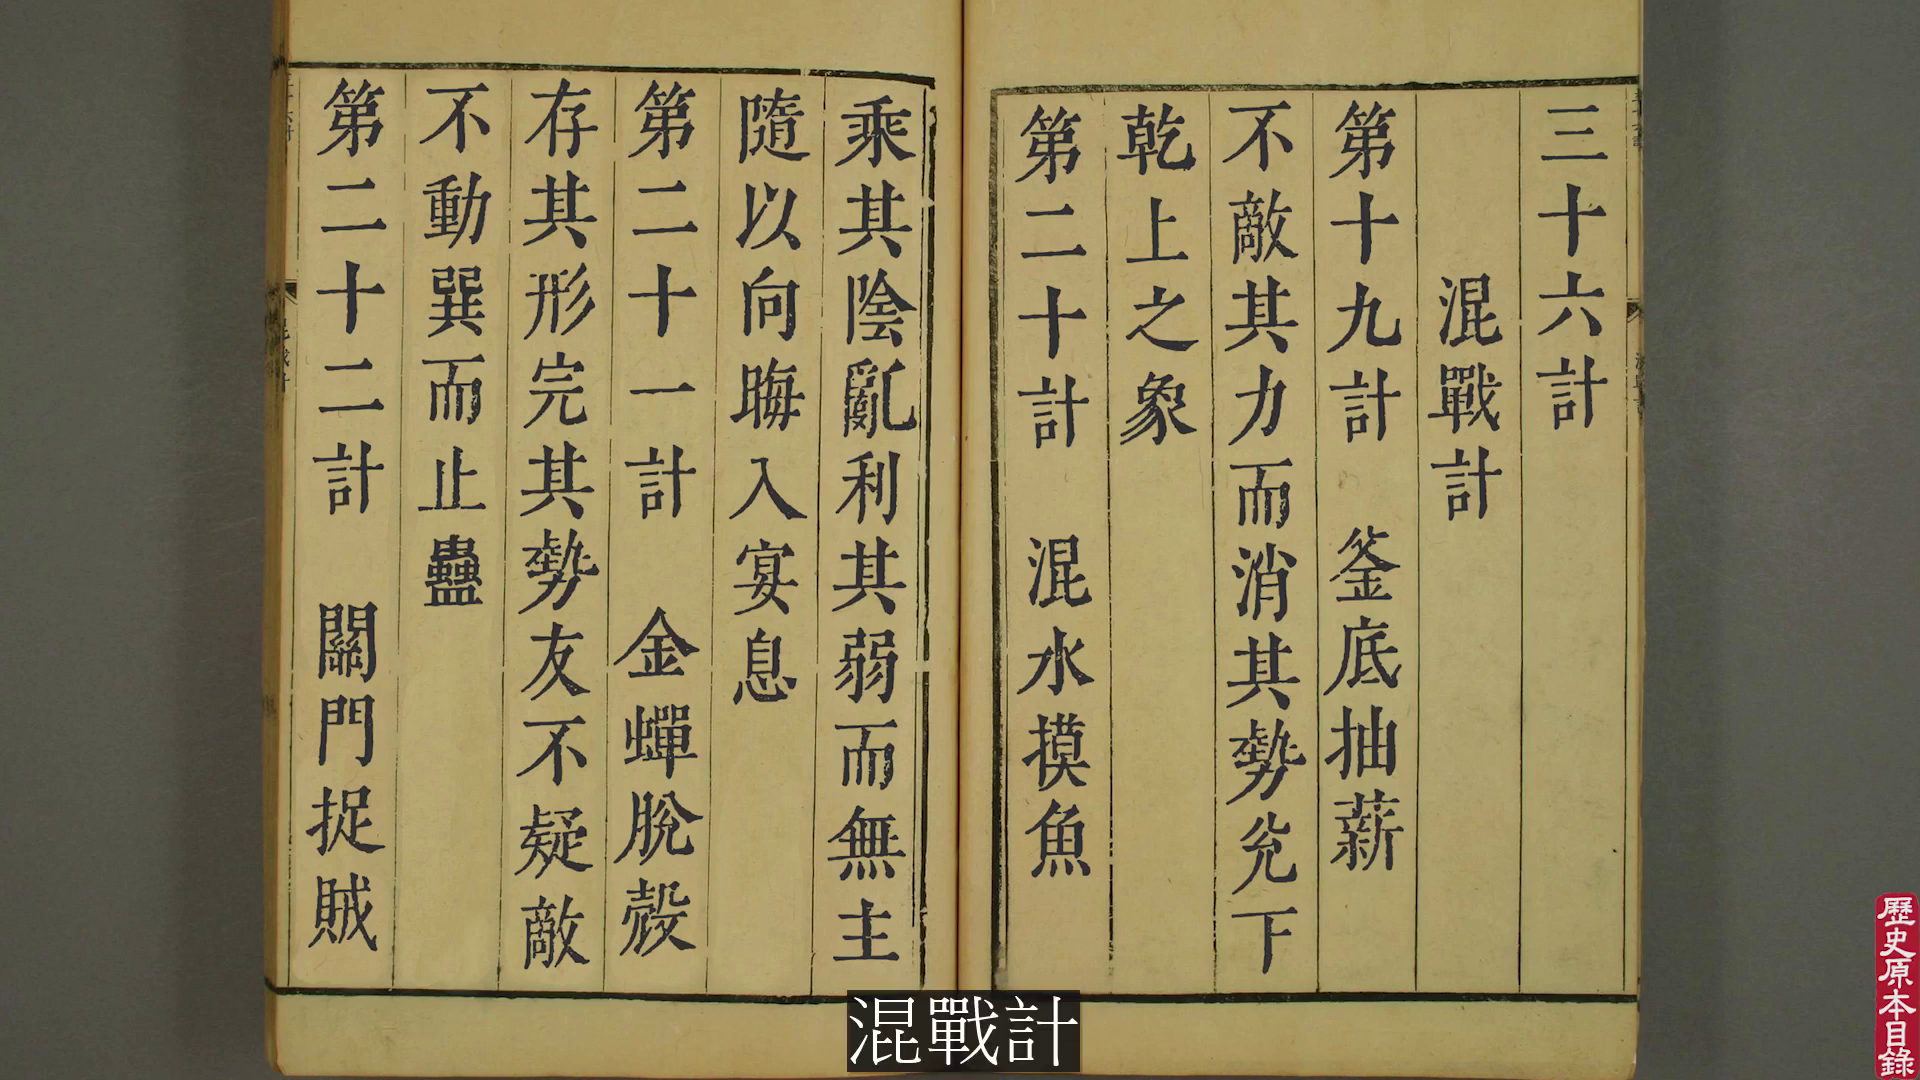 三十六計
混戰計
第十九計 釜底抽薪
不敵其力而消其勢兊下
乾上之象
第二十計 混水摸魚
乘其陰亂利其弱而無主
隨以向晦入宴息
第二十一計 金蟬脫殼
存其形完其勢友不疑敵
不動巽而止蠱
第二十二計 關門捉賊
混戰計
歷史原本目錄